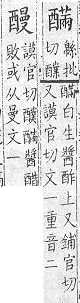 䤍緜批
切䤍醭白生醬酢上又鋪官切
又謨官切文一重音二
謨官切䤍醭醬
敗或从曼文